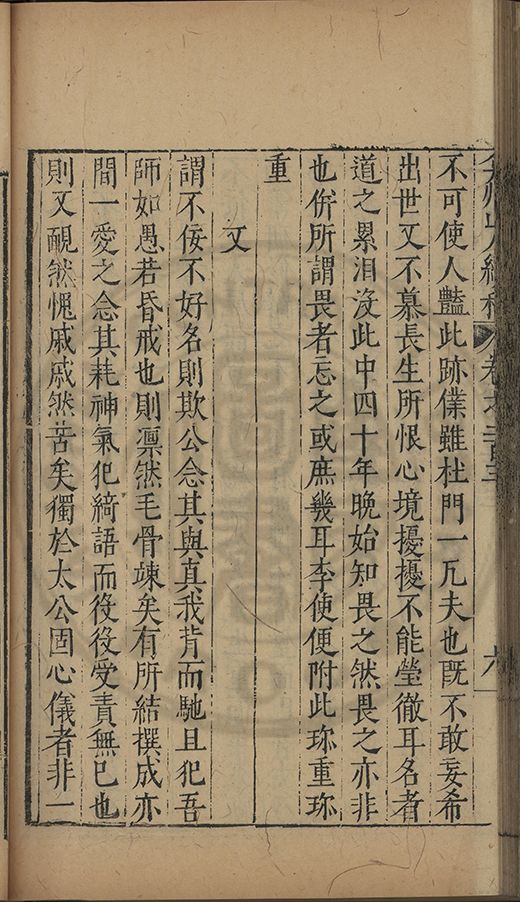 弇州山人續稿 卷之二百三 六
不可使人豔此跡僕雖杜門一凡夫也既不敢妄希
出世又不慕長生所恨心境擾擾不能瑩徹耳名者
道之累泪没此中四十年晚始知畏之然畏之亦非
也併所謂畏者忘之或庶幾耳李使便附此珎重珎
重
又
謂不佞不好名則欺公念其與真我背而馳且犯吾
師如愚若昏戒也則凛然毛骨竦矣有所結撰成亦
間一愛之念其耗神氣犯綺語而役役受責無已也
則又靦然愧戚戚然苦矣獨於太公固心儀者非一